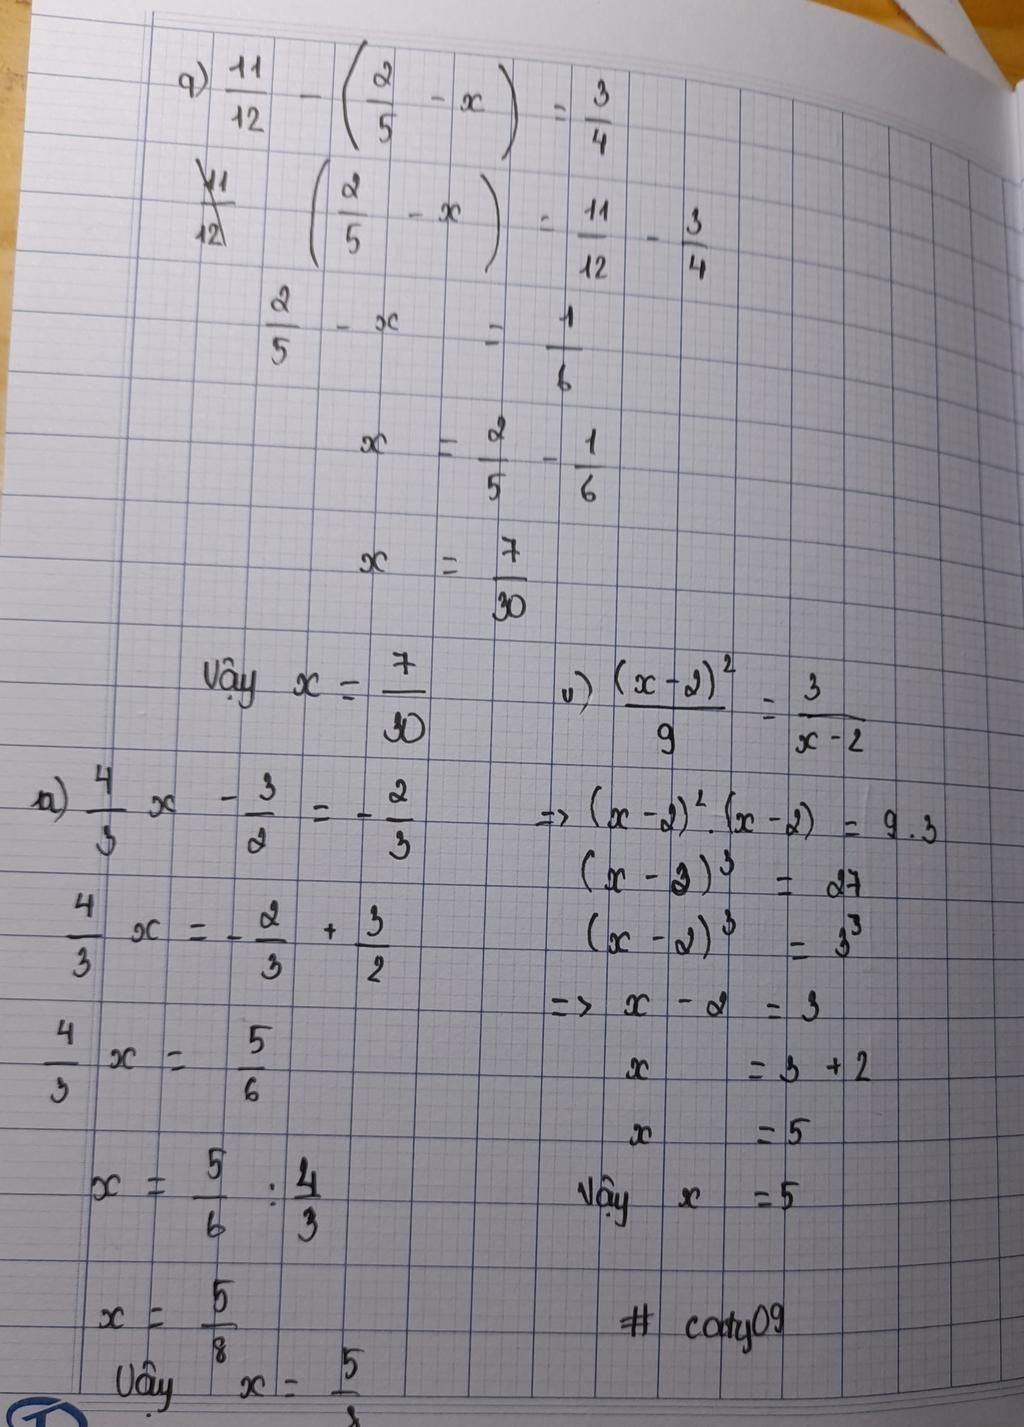 q) 11/12 - (2/5 - x) = 3/4
(2/5 - x) = 11/12 - 3/4
2/5 - x = 1/6
x = 2/5 - 1/6
x = 7/30
Vậy x = 7/30
n) 4/3 x - 3/2 = - 2/3
4/3 x = - 2/3 + 3/2
4/3 x = 5/6
x = 5/6 : 4/3
x = 5/8
Vậy x = 5/
v) (x-2)²/9 = 3/(x-2)
=> (x-2)².(x-2) = 9.3
(x-2)³ = 27
(x-2)³ = 3³
=> x - 2 = 3
x = 3 + 2
x = 5
Vậy x = 5